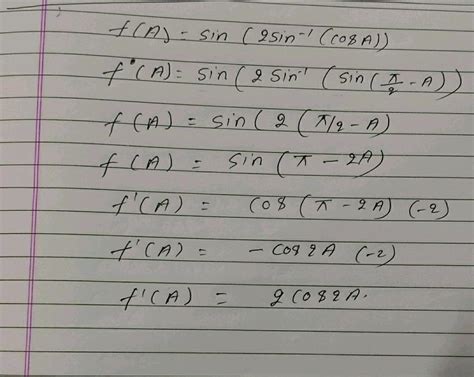 f(A) = sin (2sin⁻¹ (cosA))
f'(A) = sin (2 sin⁻¹ (sin (π/2 - A))
f(A) = sin (2 (π/2 - A)
f(A) = sin (π - 2A)
f'(A) = cos (π - 2A) (-2)
f'(A) = - cos2A (-2)
f'(A) = 2cos2A.